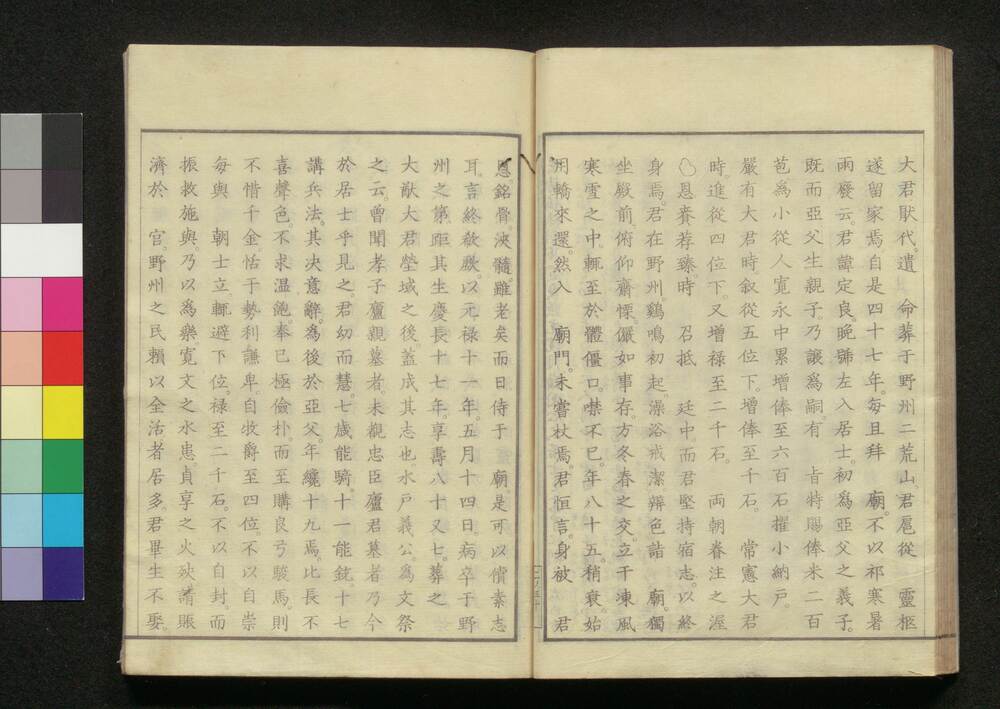 大君猒代。遺　命葬于野州二荒山君扈從　靈柩
遂留家焉自是四十七年。每旦拜　廟。不以祁寒暑
雨廢云君諱定良。晚號左入居士初爲亞父之義子。
既而亞父生親子。乃讓爲嗣。有　旨特賜俸米二百
苞爲小從人寛永中累增俸至六百石擢小納戸。
嚴有大君時。叙從五位下。增俸至千石。　常憲大君
時。進從四位下。又增祿至二千石。　兩朝眷注之渥
恩眷荐臻。時　召抵　廷中。而君堅持宿志。以終
身焉。君在野州。鷄鳴初起。澡浴戒潔辨色詣　廟。獨
坐殿前。俯仰齋慄。儼如事存。方冬春之交。立干凍風
寒雪之中輒至於體僵口噤不已。年八十五。稍衰。始
用轎來還。然入　廟門。未嘗杖焉。君恒言。身被　君
恩。銘骨浹髓。雖老矣而日侍于　廟。是可以償素志
耳。言終歛歔。以元禄十一年。五月十四日。病卒于野
州之第。距其生慶長十七年。享壽八十又七。葬之
大猷大君塋域之後蓋成其志也。水戸義公。爲文祭
之云。曾聞孝子廬親墓者。未覩忠臣廬君墓者乃今
於居士乎見之。君幼而慧。七歳能騎。十一能銃。十七
講兵法。其决意辭。爲後於亞父。年纔十九焉。比長不
喜聲色。不求温飽。奉己極儉朴。而至購良弓駿馬。則
不惜千金。恬于勢利謙卑。自牧爵至四位。不以自崇
每與　朝士立。輒避下位。禄至二千石。不以自封。而
振救施與。乃以爲樂。寛文之水患。貞享之火殃。請賑
濟於　官。野州之民賴以全活者居多。君畢生不娶。